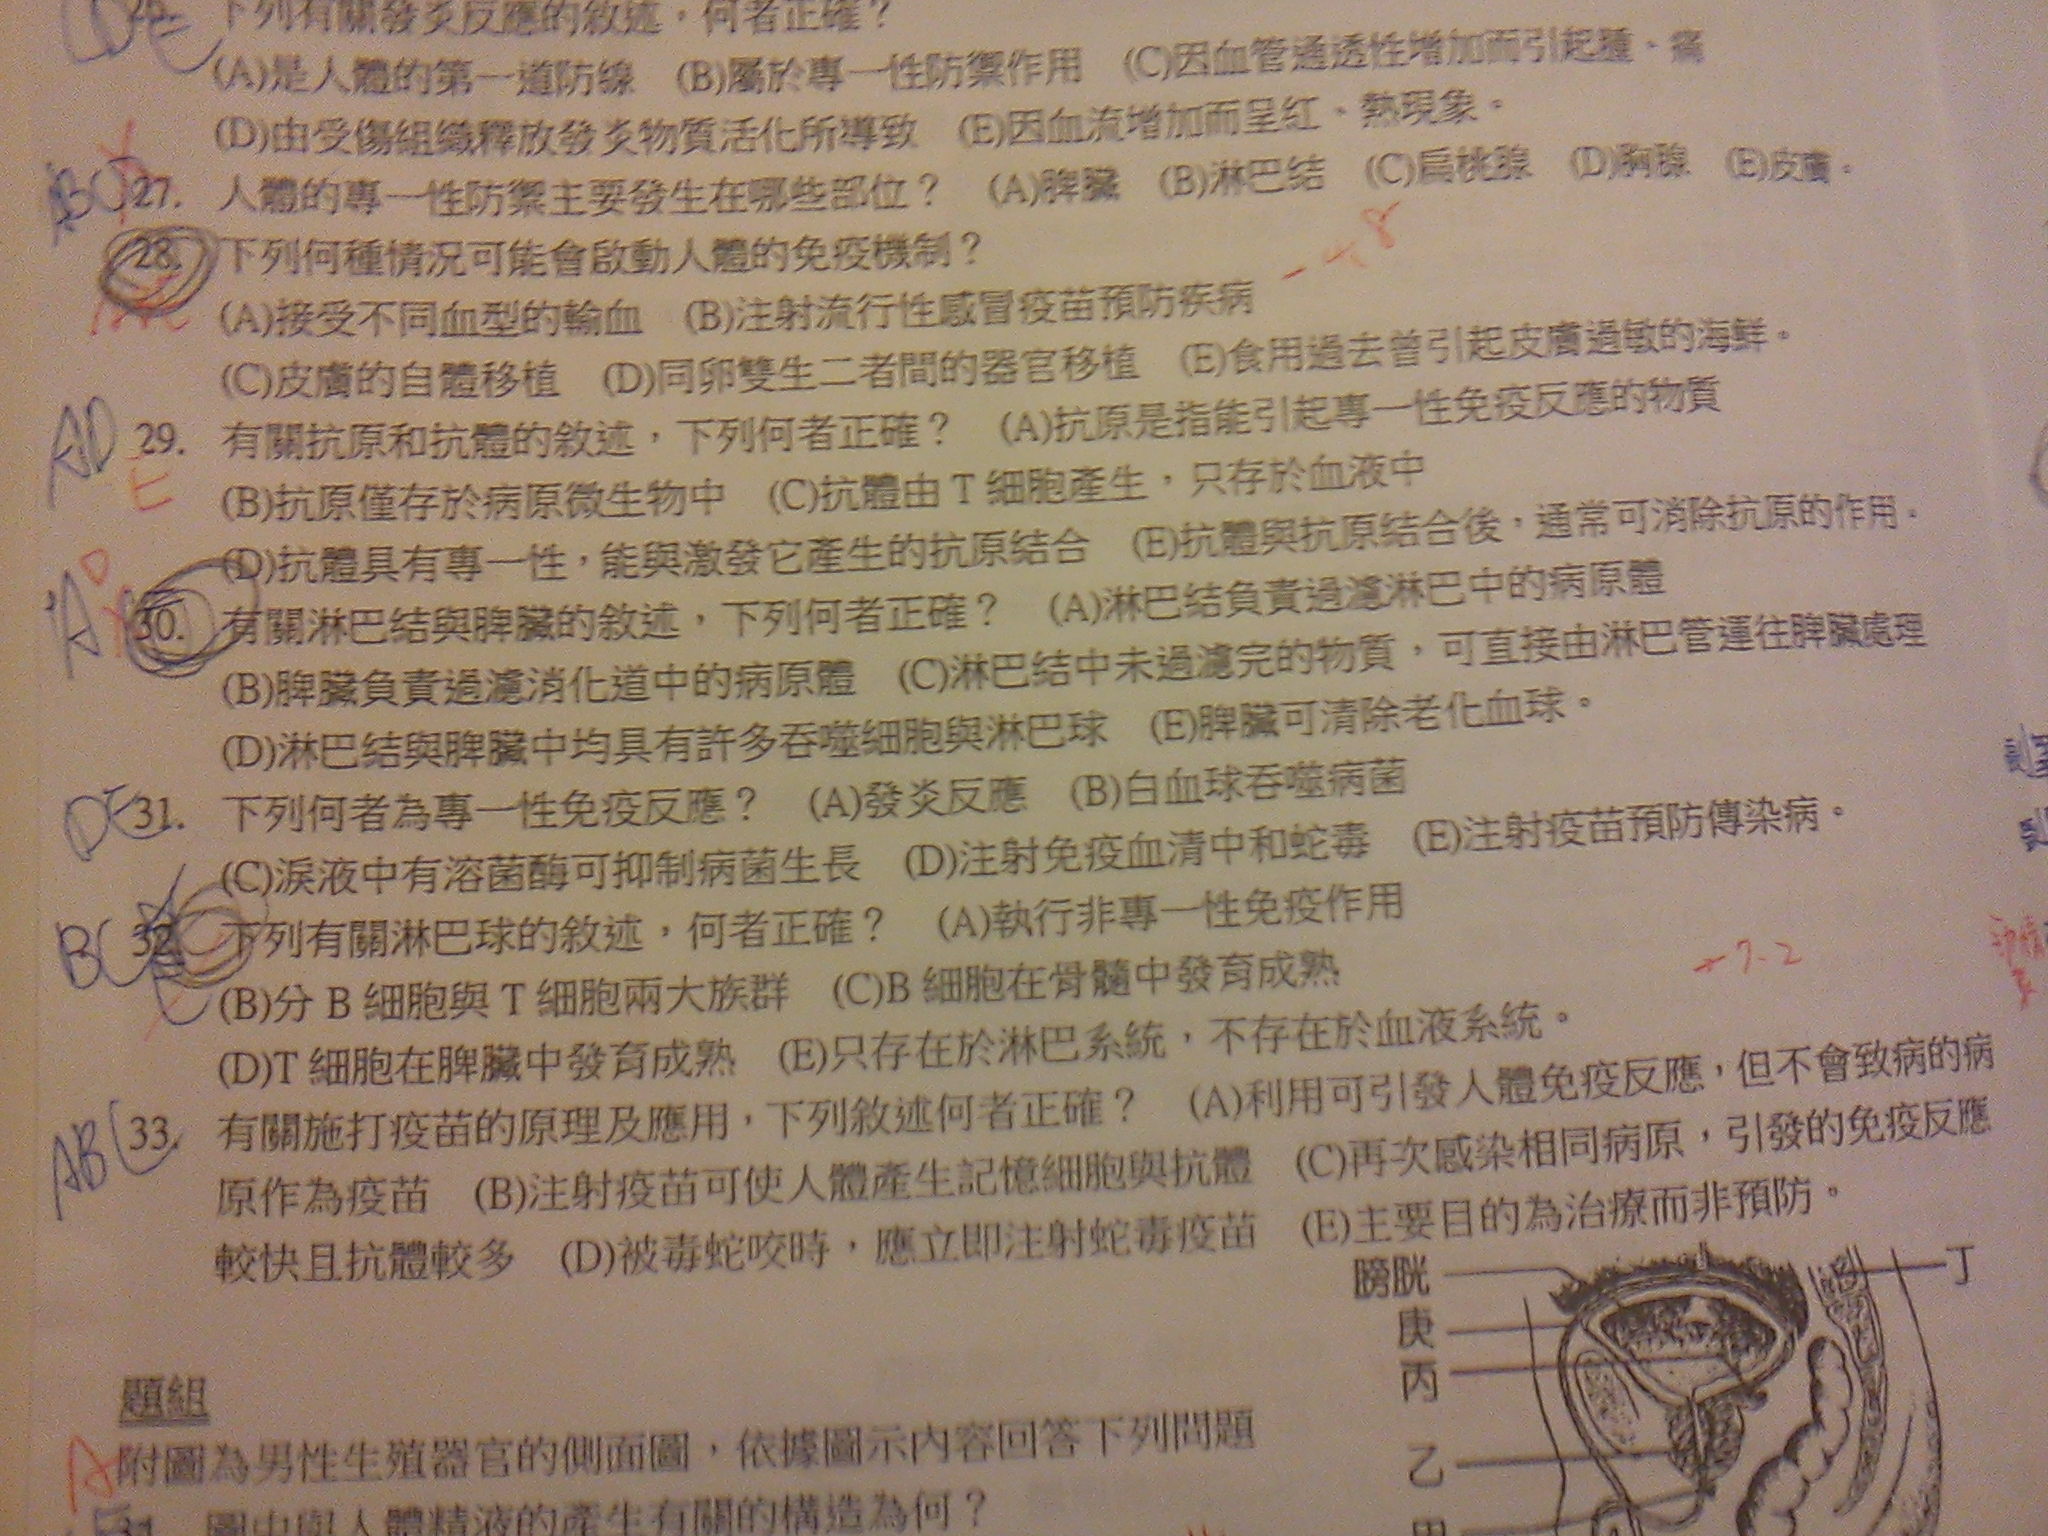 下列有關發炎反應的敘述，何者正確？
(A)是人體的第一道防線 (B)屬於專一性防禦作用 (C)因血管通透性增加而引起腫、痛
(D)由受傷組織釋放發炎物質活化所導致 (E)因血流增加而呈紅、熱現象。
27. 人體的專一性防禦主要發生在哪些部位？ (A)脾臟 (B)淋巴結 (C)扁桃腺 (D)胸腺 (E)皮膚。
28. 下列何種情況可能會啟動人體的免疫機制？
-4.8
(A)接受不同血型的輸血 (B)注射流行性感冒疫苗預防疾病
(C)皮膚的自體移植 (D)同卵雙生二者間的器官移植 (E)食用過去曾引起皮膚過敏的海鮮。
AD 29. 有關抗原和抗體的敘述，下列何者正確？ (A)抗原是指能引起專一性免疫反應的物質
E (B)抗原僅存於病原微生物中 (C)抗體由 T 細胞產生，只存於血液中
(D)抗體具有專一性，能與激發它產生的抗原結合 (E)抗體與抗原結合後，通常可消除抗原的作用。
A D 30. 有關淋巴結與脾臟的敘述，下列何者正確？ (A)淋巴結負責過濾淋巴中的病原體
(B)脾臟負責過濾消化道中的病原體 (C)淋巴結中未過濾完的物質，可直接由淋巴管運往脾臟處理
(D)淋巴結與脾臟中均具有許多吞噬細胞與淋巴球 (E)脾臟可清除老化血球。
DE 31. 下列何者為專一性免疫反應？ (A)發炎反應 (B)白血球吞噬病菌
(C)淚液中有溶菌酶可抑制病菌生長 (D)注射免疫血清中和蛇毒 (E)注射疫苗預防傳染病。
BC 32. 下列有關淋巴球的敘述，何者正確？ (A)執行非專一性免疫作用
+7.2
(B)分 B 細胞與 T 細胞兩大族群 (C)B 細胞在骨髓中發育成熟
(D)T 細胞在脾臟中發育成熟 (E)只存在於淋巴系統，不存在於血液系統。
ABC 33. 有關施打疫苗的原理及應用，下列敘述何者正確？ (A)利用可引發人體免疫反應，但不會致病的病
原作為疫苗 (B)注射疫苗可使人體產生記憶細胞與抗體 (C)再次感染相同病原，引發的免疫反應
較快且抗體較多 (D)被毒蛇咬時，應立即注射蛇毒疫苗 (E)主要目的為治療而非預防。
膀胱
丁
庚
丙
乙
甲
題組
A 附圖為男性生殖器官的側面圖，依據圖示內容回答下列問題
34. 圖中與人體精液的產生有關的構造為何？